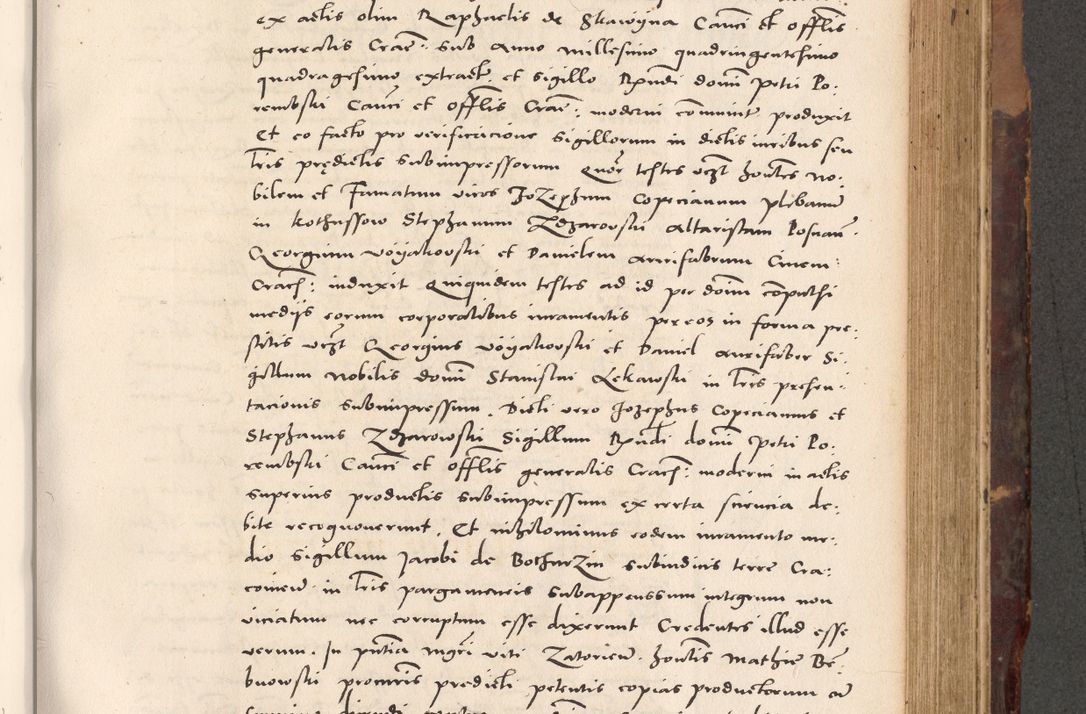 ex actis olim Raphaelis de Skawyna Canci et offlis
generalis Crac: sub anno millesimo quadringentesimo
quadragesimo extract. et sigillo Rndi domi Petri Po:
rembski Canci et offlis Crac: moderni communit produxit
Et eo facto pro verificacione sigillorum in dictis iuribus seu
lris prędictis subimpressorum Quor testes vczt hontes No:
bilem et Famatum viros Jozephum Copecianum plibanu
in Kothussow Stephanum Zdzarovski altaristam Posnan:
Georgium Voyakovski et Danielem aurifabrum Civem
Crac: induxit Quiquidem testes ad id per domi compulsi
medijs eorum corporalibus iuramentis per eos in forma pre:
stitis vczt Georgius Voyakovski et Daniel aurifaber Si:
gillum Nobilis domi Stanislai Lekawski in lris presen:
tacionis subimpressum. Dicti vero Jozephus Copecianus et
Stephanus Zdzarowski Sigillum Rndi domi Petri Po:
rembski Canci et offlis generalis Crac: moderni in actis
superius productis subimpressum ex certa sciencia de:
bite recognoverunt. Et nihilominus eodem iuramento me:
dio sigillum Jacobi de Bothurzin subiudicis terre Cra:
covien in lris pargameneis subappenssum integrum non
viciatum nec corruptum esse dixerunt Credentes illud esse
verum. In pntia mgri viti Zatorien hontis Mathie Be:
bnowski procuris predicti petentis copias productorum